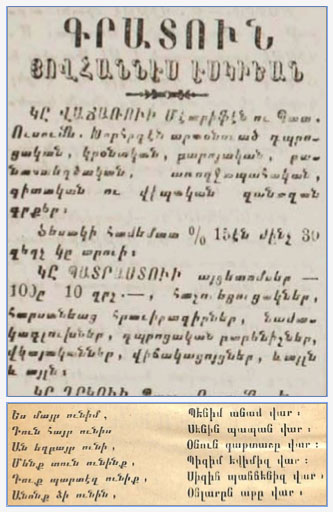 ԳՐԱՏՈՒՆ
ՅՈՎՀԱՆՆԷՍ ԷՍԿԻԵԱՆ
ԿԸ ՎԱՃԱՌՈՒԻ Մէարիֆէն ու Պատ.
արտօնուած դպրո-
ցական, կրօնական, բարոյական, բա-
նասիրական, առողջապահական,
գիտական ու վիպական զանազան
գրքեր։
համեմատ % 15էն մինչ 30
զեղչ կը տրուի։
ԿԸ ՊԱՏՐԱՍՏՈՒԻ այցետոմսեր —
100ը 10 ղրշ.—, հաշուեցուցակներ,
հարսանեաց հրաւիրագիրներ, նամա-
կագլուխներ, դպրոցական բարենիշներ,
վկայականներ, վիճակացոյցներ, ևայլն
և այլն։
Ես մայր ունիմ,
Դուն հայր ունիս
Ան եղբայր ունի,
Մենք տուն ունինք,
Դուք պարտէզ ունիք,
Անոնք ձի ունին,
Պենիմ անամ վար։
Սենին պապան վար։
Օնուն գարտաշը վար։
Պիզիմ եվիմիզ վար։
Սիզին պահճենիզ վար։
Օնլարըն աթը վար։